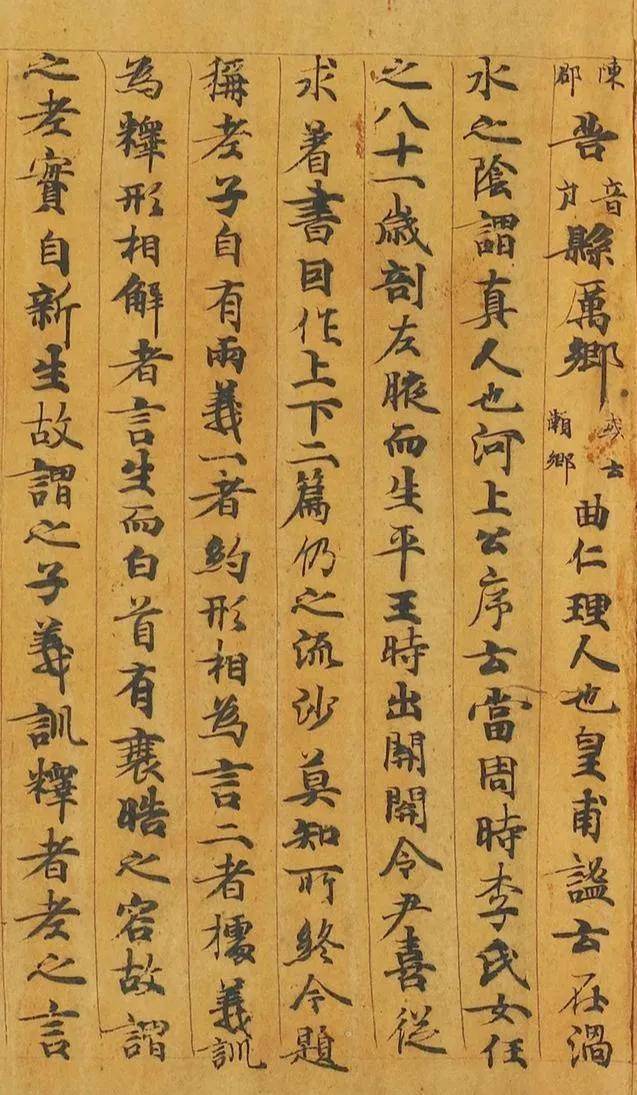 陳郡苦音户縣厲鄉或云瀬鄉曲仁理人也皇甫謐云在渦
水之陰謂真人也河上公序云當周時李氏女任
之八十一歲剖左腋而生平王時出關關令尹喜從
求著書因作上下二篇仍之流沙莫知所終今題
稱老子自有兩義一者約形相為言二者據義訓
為釋形相解者言生而白首有衰皓之容故謂
之老實自新生故謂之子義訓釋者老之言